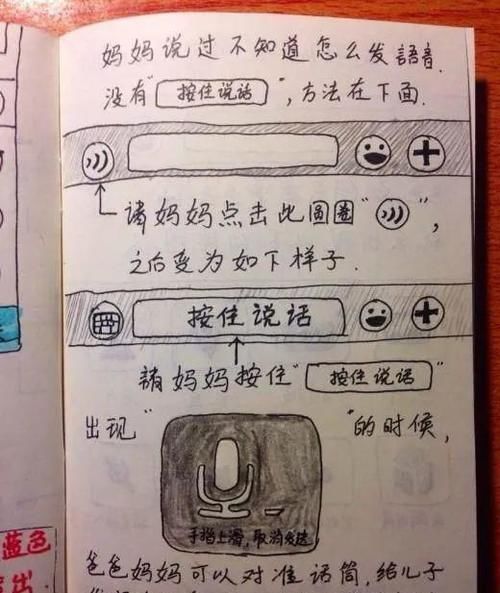 妈妈说过不知道怎么发語音.
没有“按住说话”,方法在下面.
請妈妈点击此圆圈“ ”,
之后变为如下样子.
按住说话
請妈妈按住“按住说话”
出现“ ”的时候,
手指上滑,取消发送
爸爸妈妈可以对准话筒,给儿子
蓝色
出